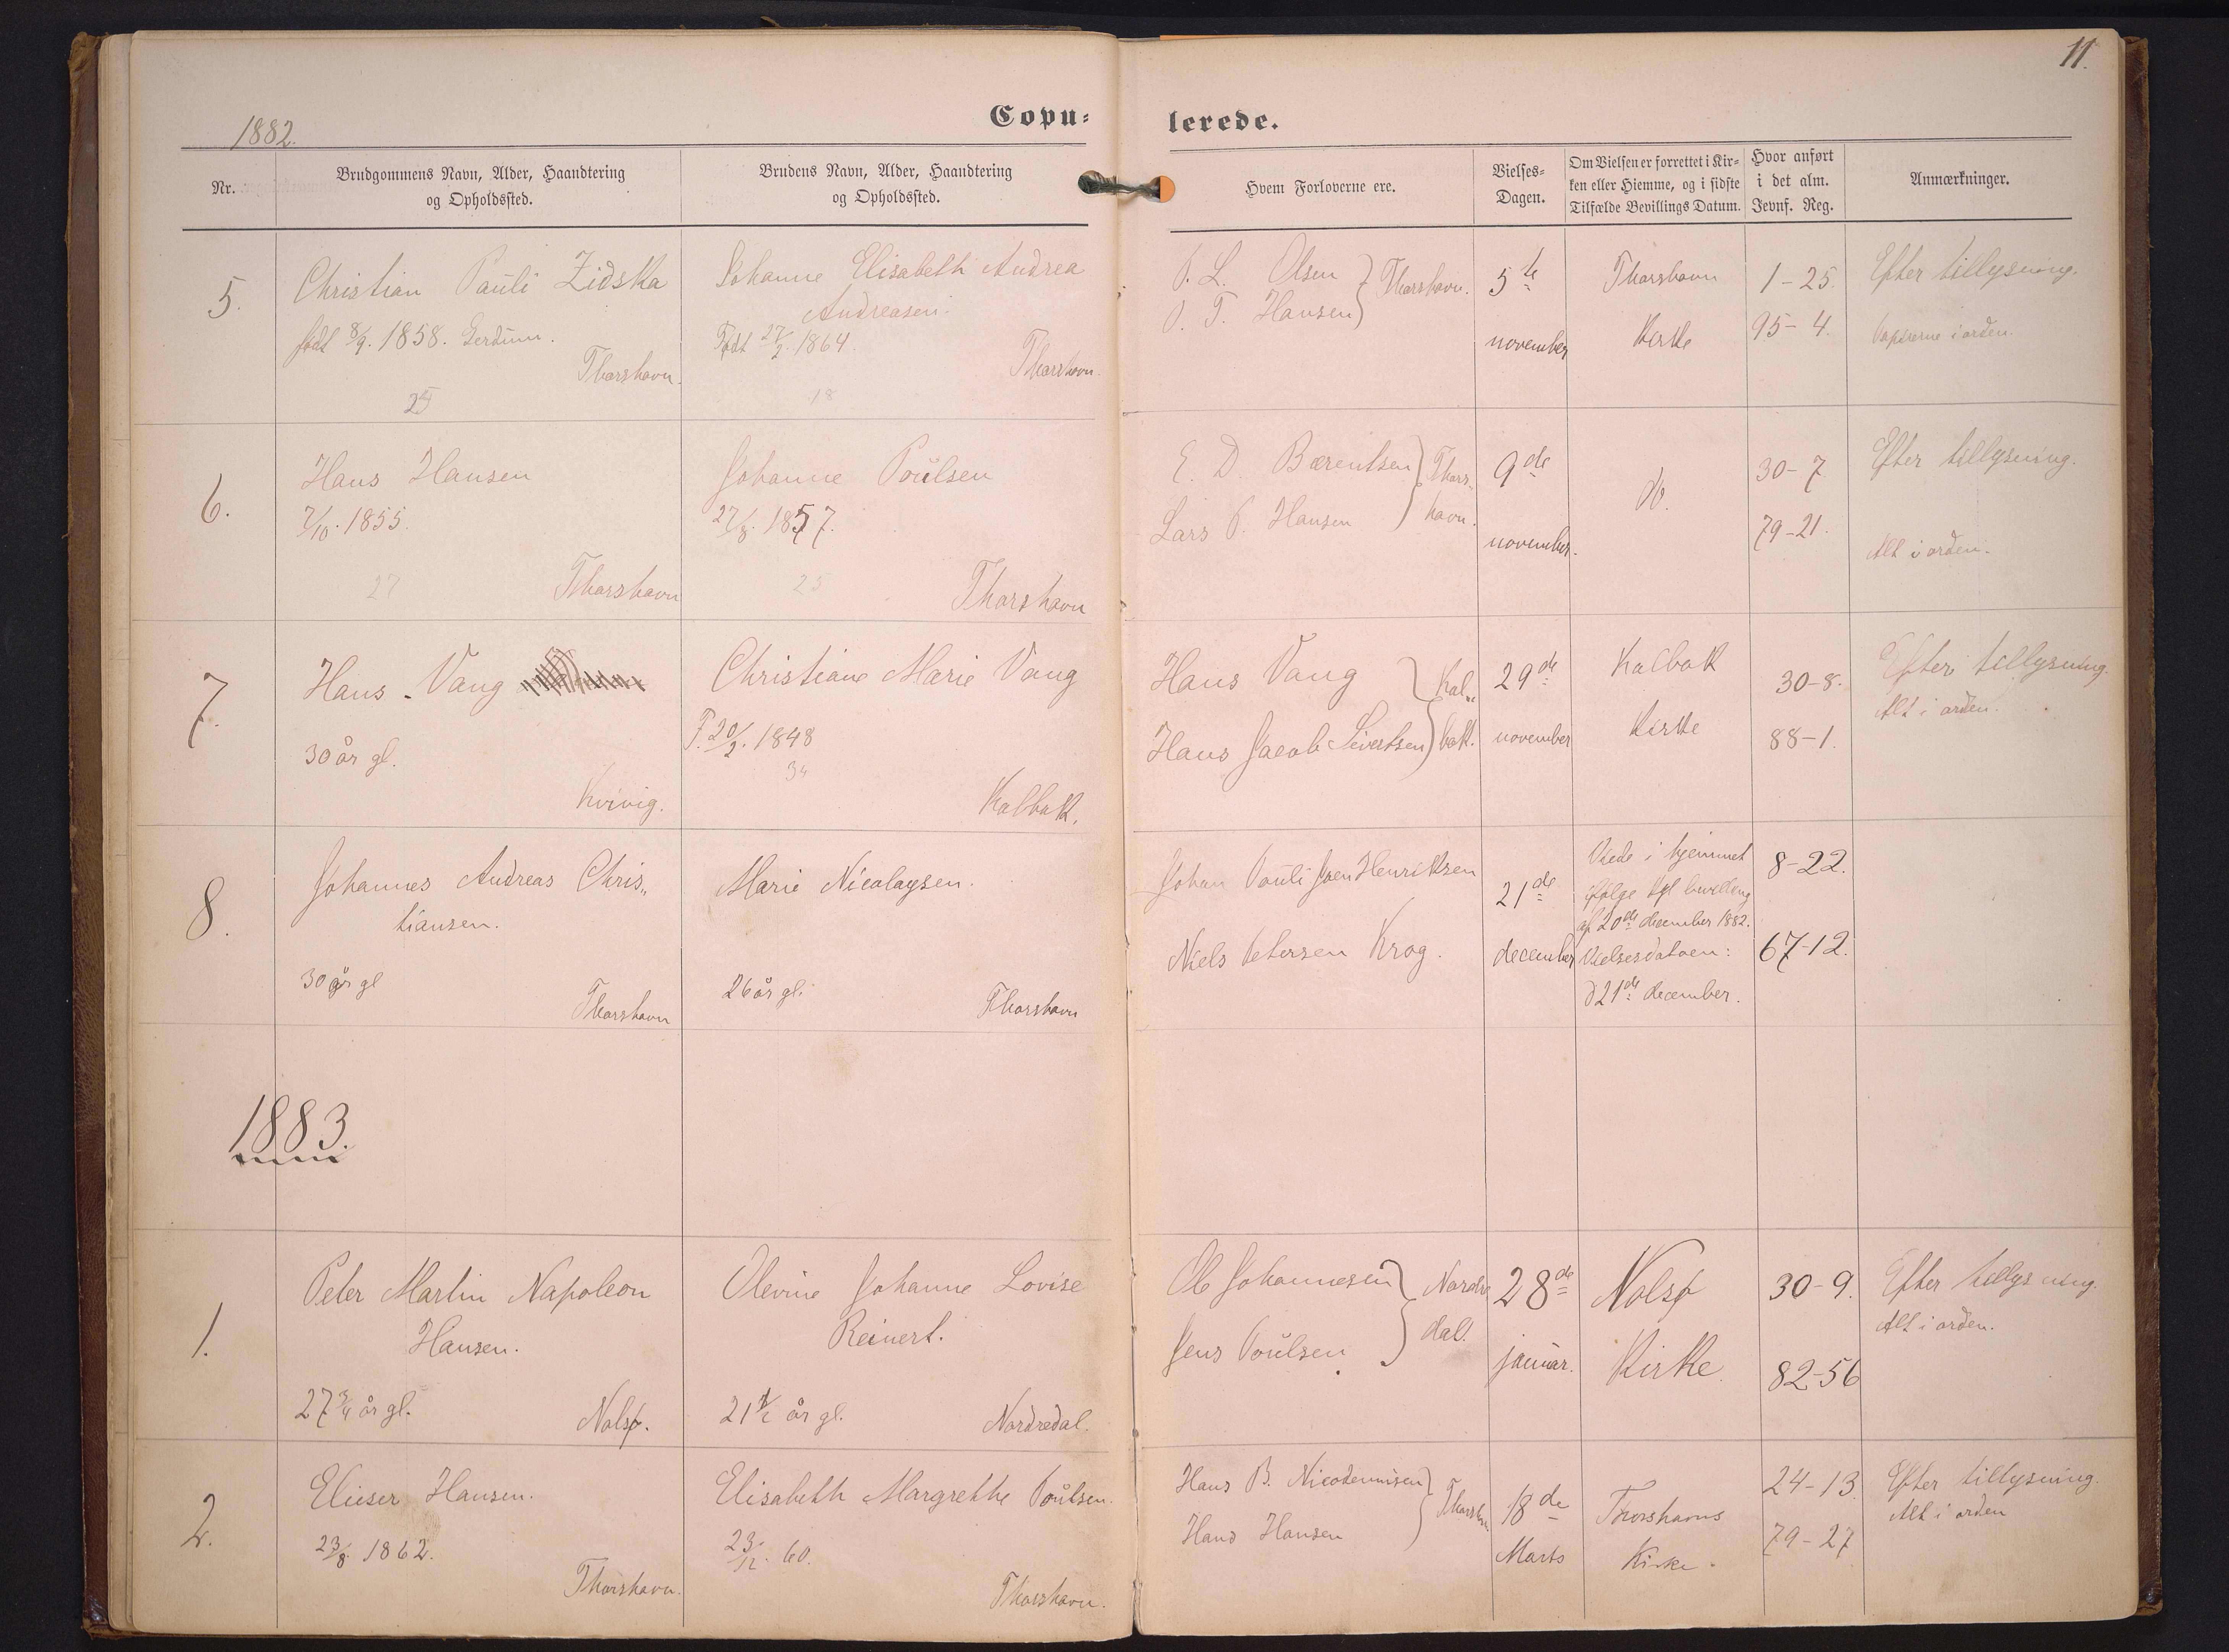 11.
Copu-
lerede.
1882.
Nr.
Brudgommens Navn, Alder, Haandtering
og Opholdssted.
Brudens Navn, Alder, Haandtering
og Opholdssted.
Hvem Forloverne ere.
Vielses-
Dagen.
Om Vielsen er forrettet i Kir-
ken eller Hjemme, og i sidste
Tilfælde Bevillings Datum.
Hvor anført
i det alm.
Jevnf. Reg.
Anmærkninger.
5.
Christian Pauli Zidska
født 8/9. 1858.
Thorshavn.
25
Johanne Elisabeth Andrea
Andreasen.
Født 27/2. 1864.
Thorshavn.
18
J. L. Olsen
J. T. Hansen
Thorshavn.
5te
november
Thorshavn
Kirke
1-25.
95-4.
Efter tillysning.
Papirerne i orden.
6.
Hans Hansen
7/10. 1855.
27
Thorshavn
Johanne Poulsen
27/8. 1857.
25
Thorshavn
E. D. Bærentsen
Lars P. Hansen
Thors-
havn.
9de
november.
do.
30-7.
79-21.
Efter tillysning.
Alt i orden.
7.
Hans Vang
30 år gl.
Kvivig.
Christiane Marie Vang
F. 20/2. 1848
34
Kalbak.
Hans Vang
Hans Jacob Sivertsen
Kal-
bak.
29de
november
Kalbak
Kirke
30-8.
88-1.
Efter tillysning.
Alt i orden.
8.
Johannes Andreas Chris-
tiansen.
30 år gl
Thorshavn
Marie Nicolaysen.
26 år gl.
Thorshavn
Johan Pauli Joen Henriksen
Niels Petersen Krog.
21de
december
Viede i hjemmet
ifølge kgl bevilling
af 20de december 1882.
Vielsesdatoen:
d 21de december.
8-22.
67-12.
1883.
1.
Peter Martin Napoleon
Hansen.
27 3/4 år gl.
Nolsø.
Olevine Johanne Lovise
Reinert.
21 1/2 år gl.
Nordredal.
Ole Johannesen
Jens Poulsen
Nordre
dal.
28de
januar.
Nolsø
Kirke
30-9.
82-56
Efter tillysning.
Alt i orden.
2.
Elieser Hansen.
23/8. 1862.
Thorshavn.
Elisabeth Margrethe Poulsen.
23/12. 60.
Thorshavn.
Hans B. Nicodemisen
Hans Hansen
Thorshavn
18de
Marts
Thorshavns
Kirke.
24-13.
79-27
Efter tillysning.
Alt i orden